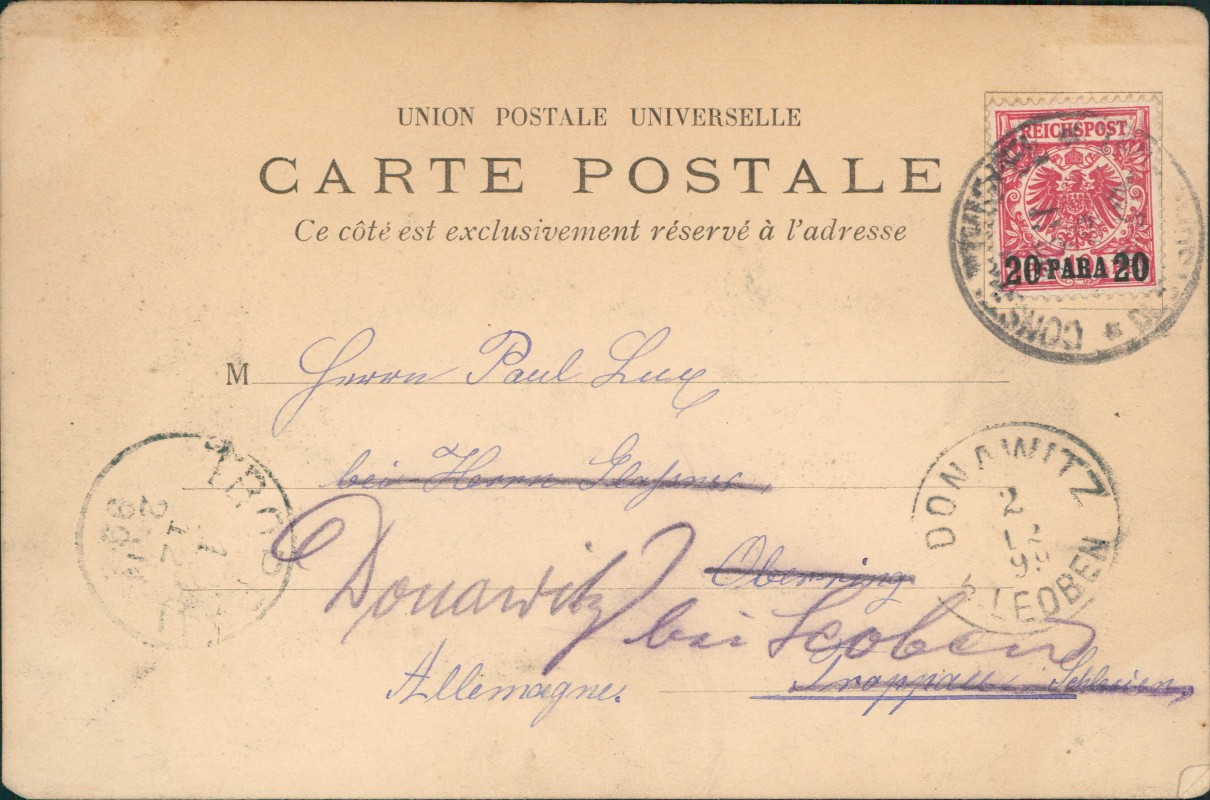 UNION POSTALE UNIVERSELLE
CARTE POSTALE
Ce côté est exclusivement réservé à l'adresse
REICHSPOST
20 PARA 20
M Herrn Paul Lux
bei Herrn
Donawitz
bei Leoben
Allemagne.
Troppau Schlesien,
DONAWITZ
2
LEOBEN